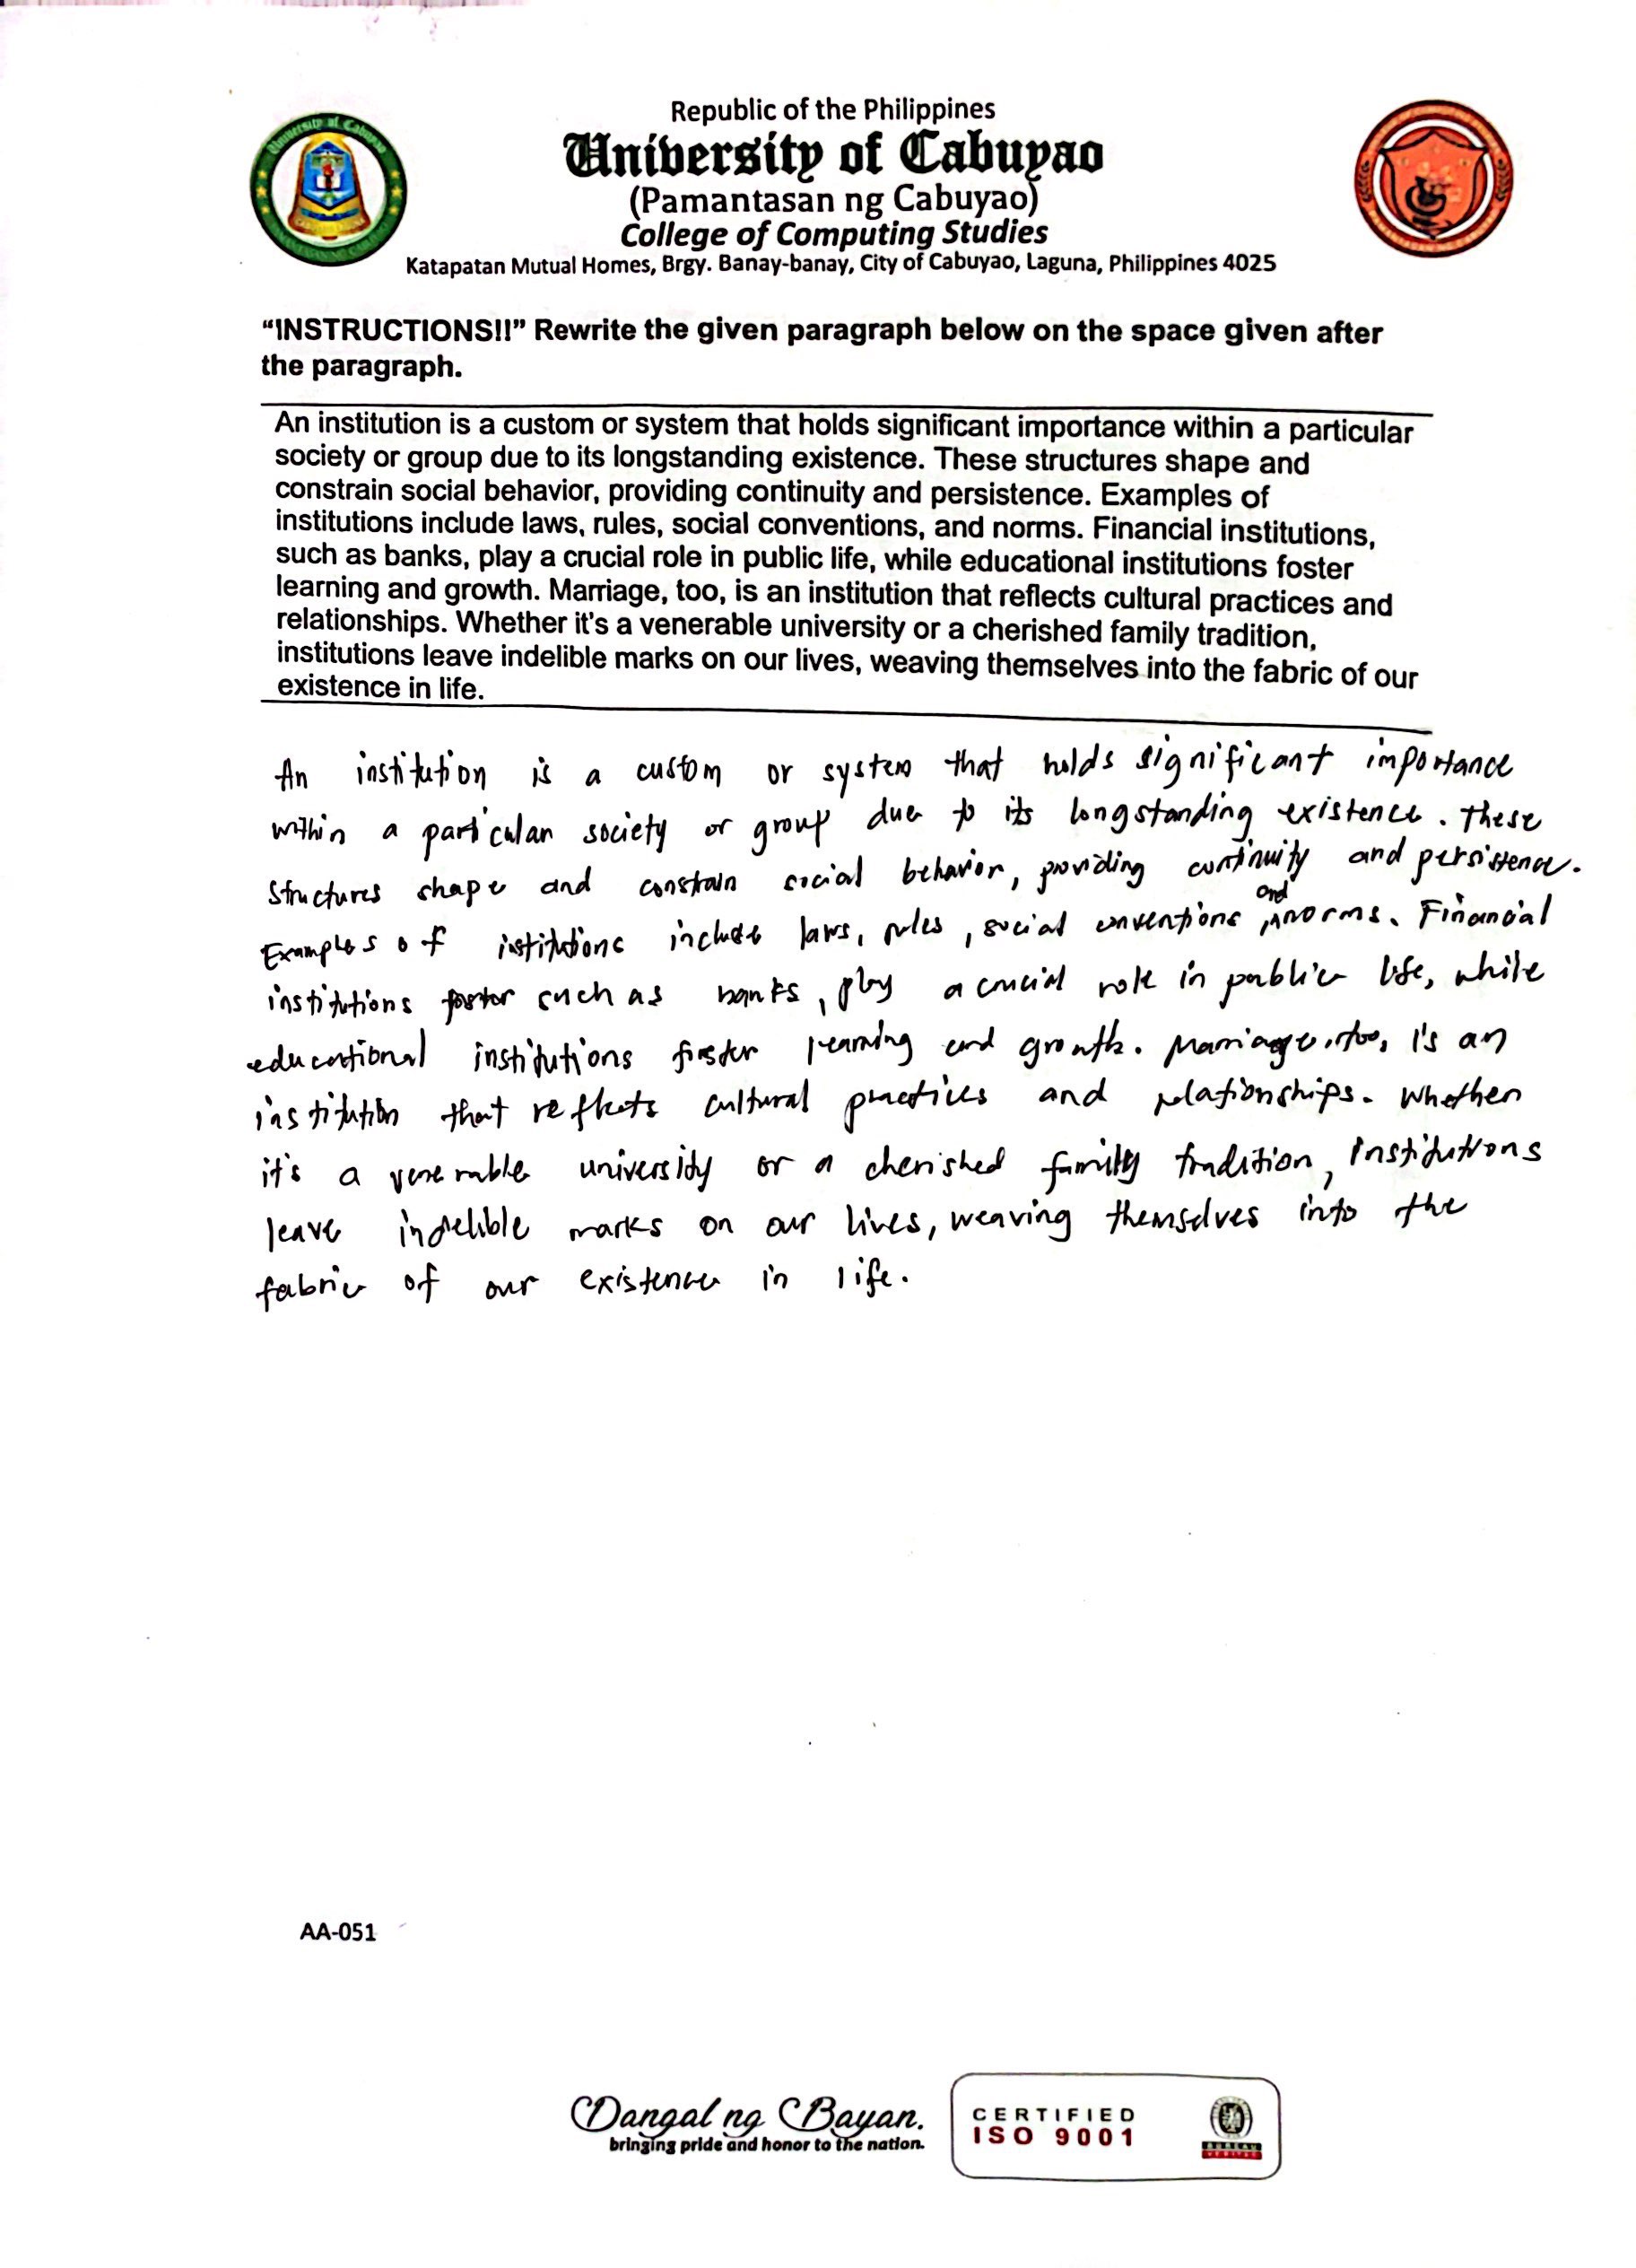 Republic of the Philippines
University of Cabuyao
(Pamantasan ng Cabuyao)
College of Computing Studies
Katapatan Mutual Homes, Brgy. Banay-banay, City of Cabuyao, Laguna, Philippines 4025
“INSTRUCTIONS!!” Rewrite the given paragraph below on the space given after
the paragraph.
An institution is a custom or system that holds significant importance within a particular
society or group due to its longstanding existence. These structures shape and
constrain social behavior, providing continuity and persistence. Examples of
institutions include laws, rules, social conventions, and norms. Financial institutions,
such as banks, play a crucial role in public life, while educational institutions foster
learning and growth. Marriage, too, is an institution that reflects cultural practices and
relationships. Whether it's a venerable university or a cherished family tradition,
institutions leave indelible marks on our lives, weaving themselves into the fabric of our
existence in life.
An institution is a custom or system that holds significant importance
within a particular society or group due to its longstanding existence. These
structures shape and constrain social behavior, providing continuity and persistence.
Examples of institutions include laws, rules, social conventions and norms. Financial
institutions foster such as banks, play a crucial role in public life, while
educational institutions foster learning and growth. Marriage, too, is an
institution that reflects cultural practices and relationships. Whether
it's a venerable university or a cherished family tradition, institutions
leave indelible marks on our lives, weaving themselves into the
fabric of our existence in life.
AA-051
Dangal ng Bayan.
bringing pride and honor to the nation.
CERTIFIED
ISO 9001